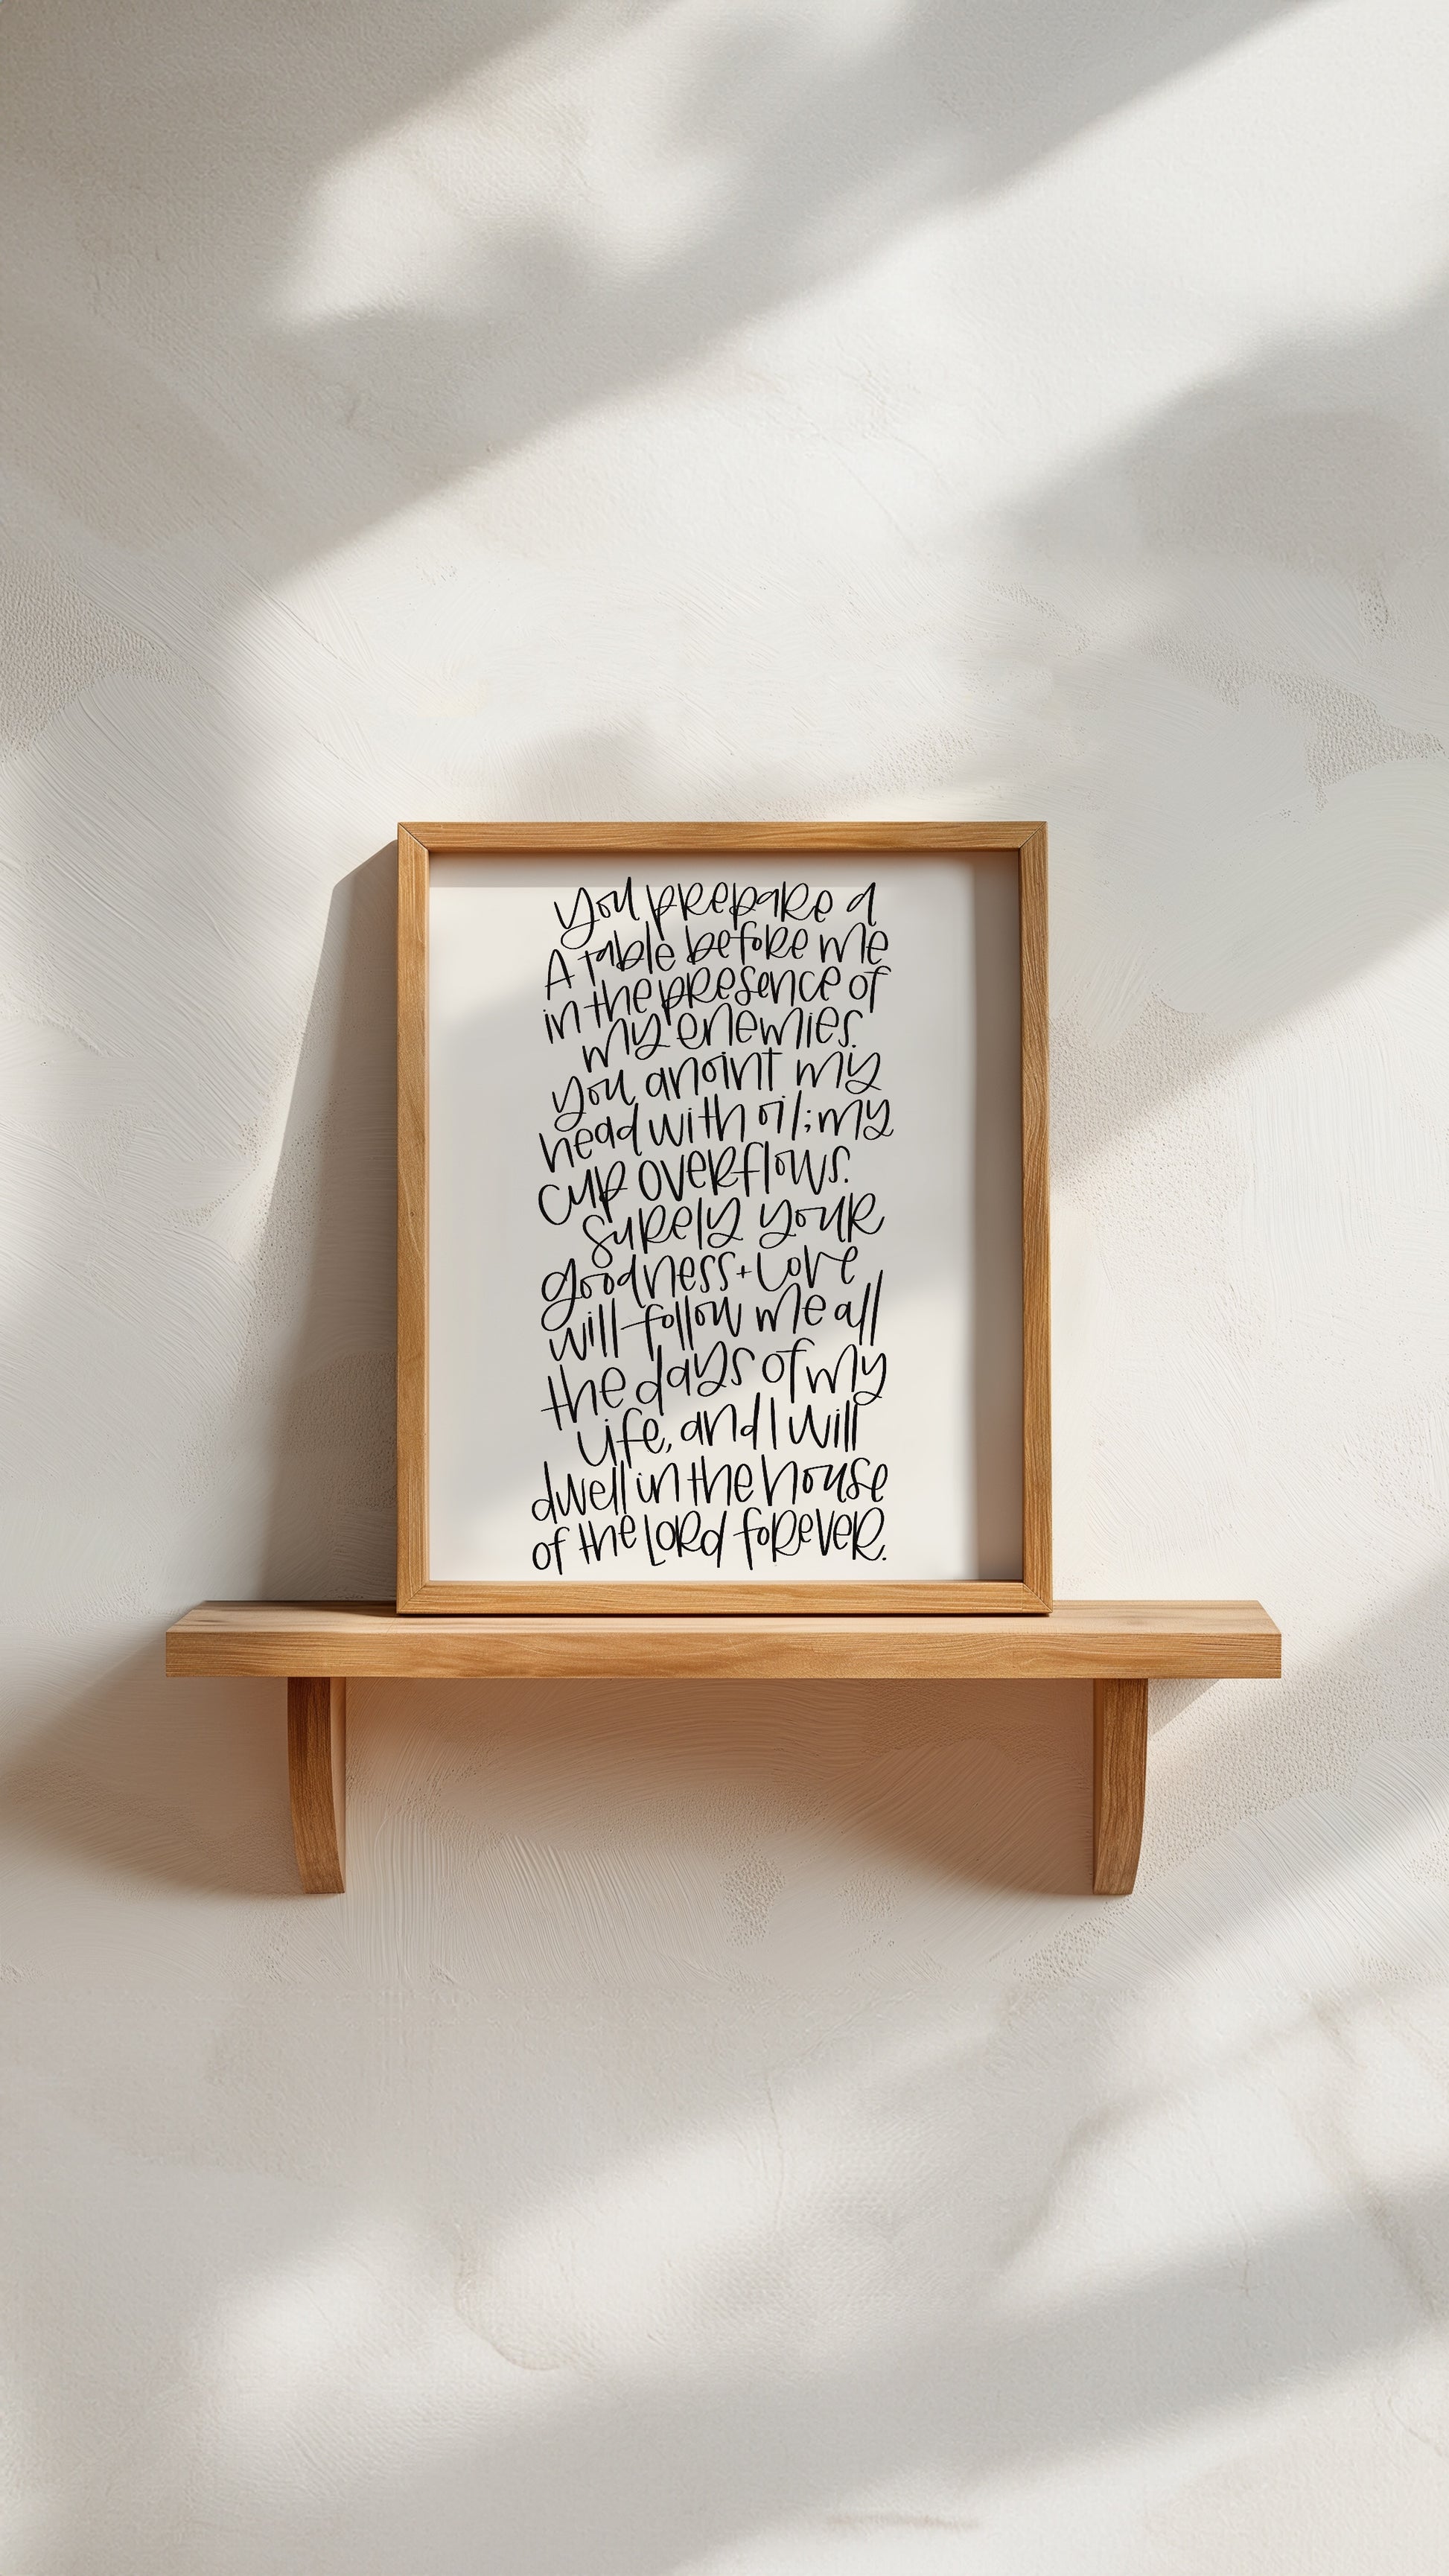 you prepare a
A table before me
in the presence of
my enemies.
you anoint my
head with oil; my
cup overflows.
surely your
goodness + love
will follow me all
the days of my
life, and I will
dwell in the house
of the Lord forever.